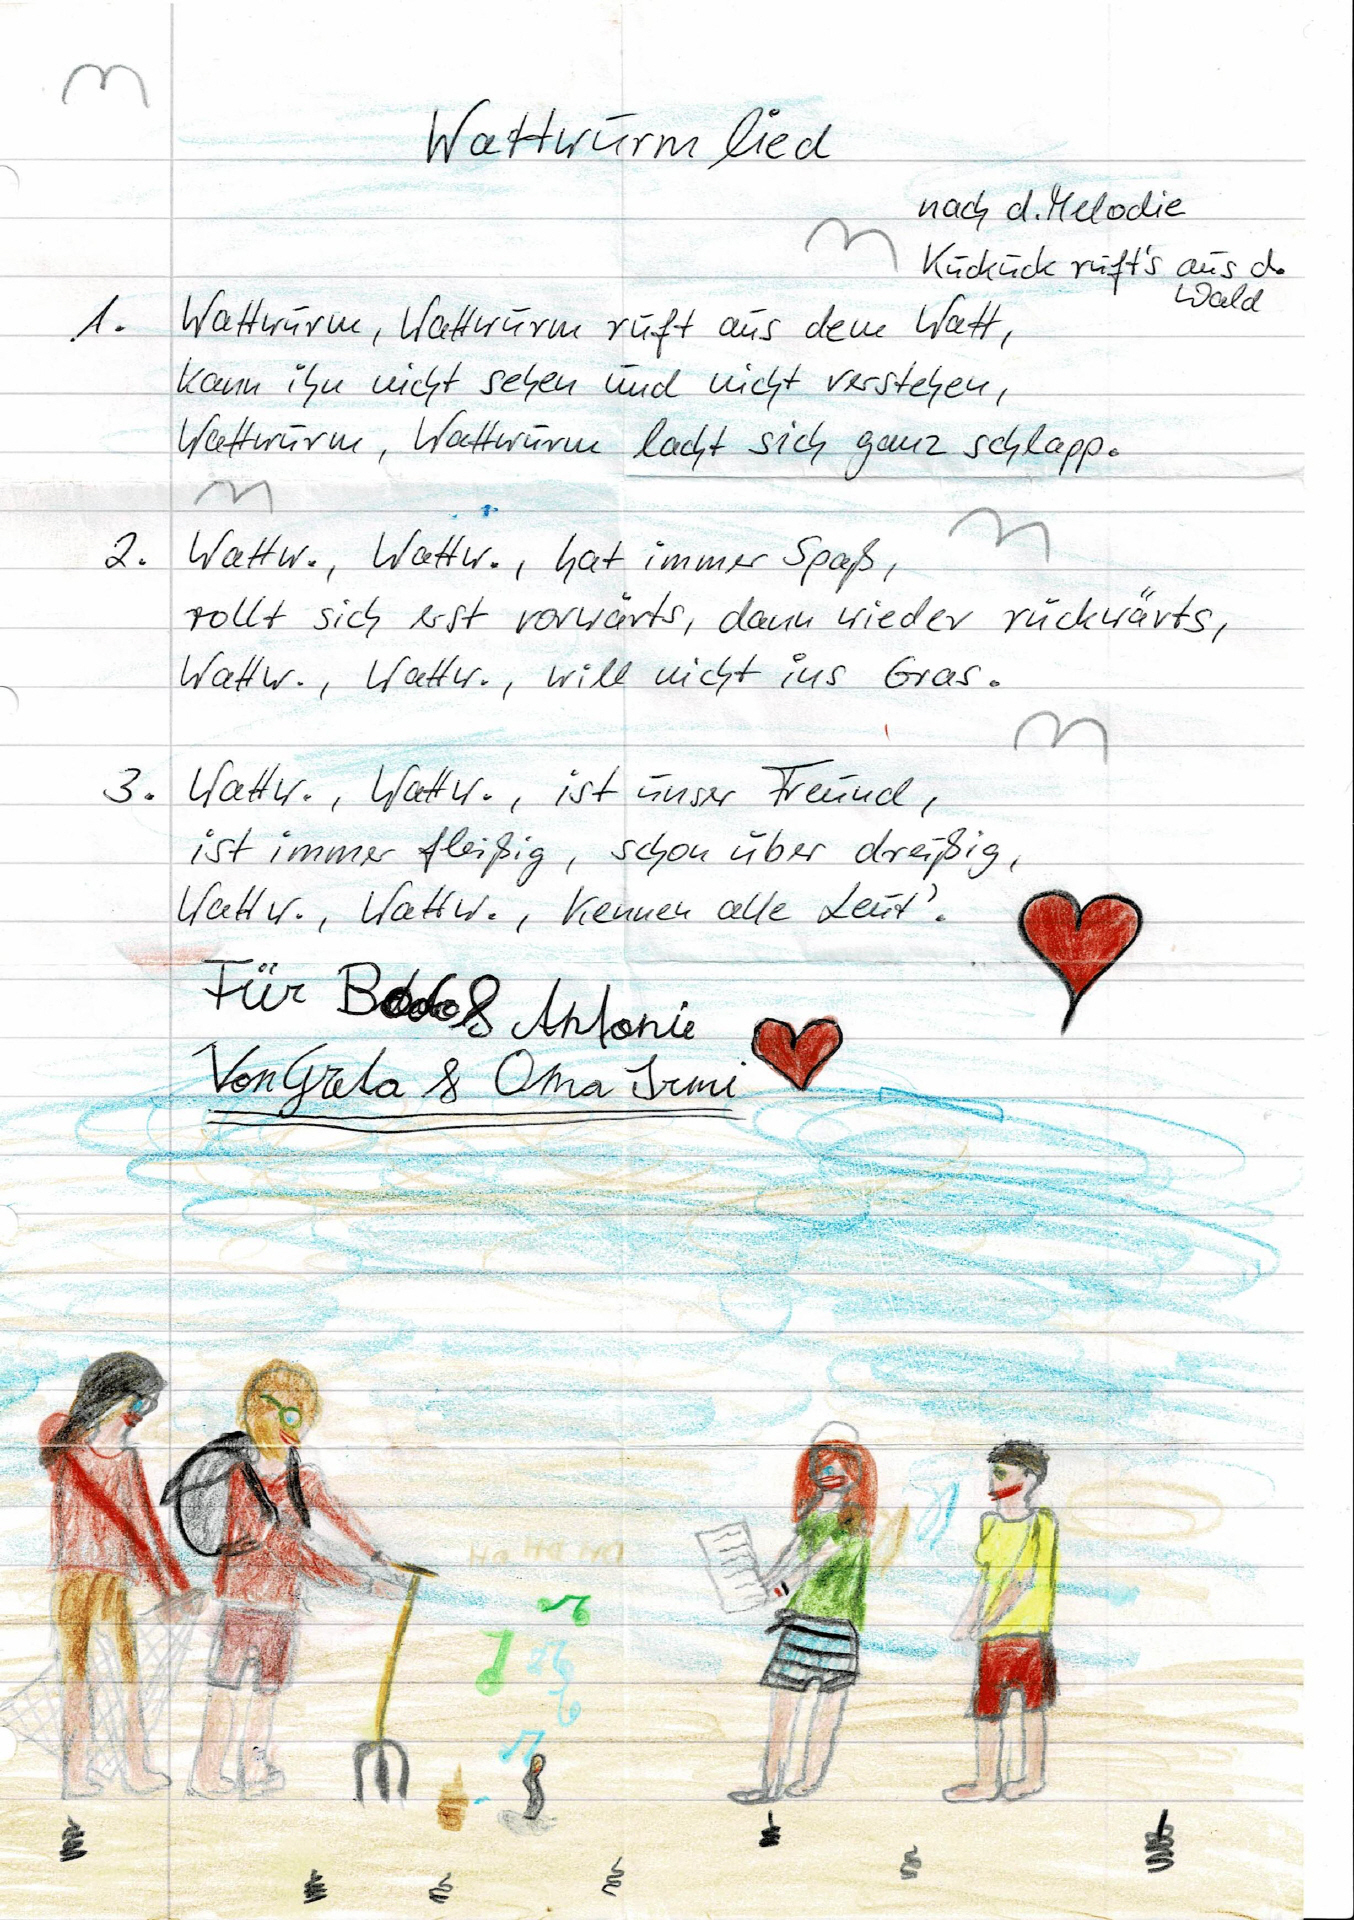 Wattwurmlied
nach d. Melodie
Kuckuck ruft's aus d.
Wald
1. Wattwurm, Wattwurm ruft aus dem Watt,
kann ihn nicht sehen und nicht verstehen,
Wattwurm, Wattwurm lacht sich ganz schlapp.
2. Wattw., Wattw., hat immer Spaß,
rollt sich erst vorwärts, dann wieder rückwärts,
Wattw., Wattw., will nicht ins Gras.
3. Wattw., Wattw., ist unser Freund,
ist immer fleißig, schon über dreißig,
Wattw., Wattw., kennen alle Leut'.
Für Bodo & Antonie
Von Greta & Oma Irmi
Ha Ha Ha